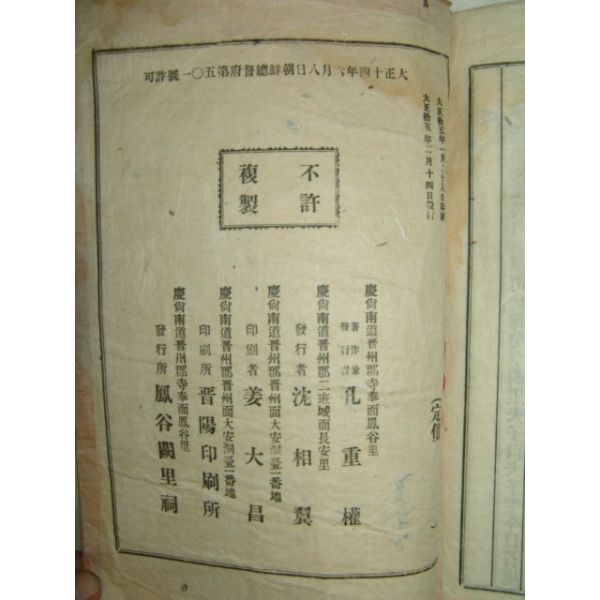 大正十四年六月八日朝鮮總督府第五〇一號許可
大正拾五年一月二十八日印刷
大正拾五年二月十四日發行
不許
複製
(定價
慶尙南道晋州郡寺奉面鳳谷里
著作兼
發行者 孔重權
慶尙南道晋州郡二班城面長安里
發行者 沈相翼
慶尙南道晋州郡晋州面大安洞壹一番地
印刷者 姜大昌
慶尙南道晋州郡晋州面大安洞壹一番地
印刷所 晋陽印刷所
慶尙南道晋州郡寺奉面鳳谷里
發行所 鳳谷闕里祠